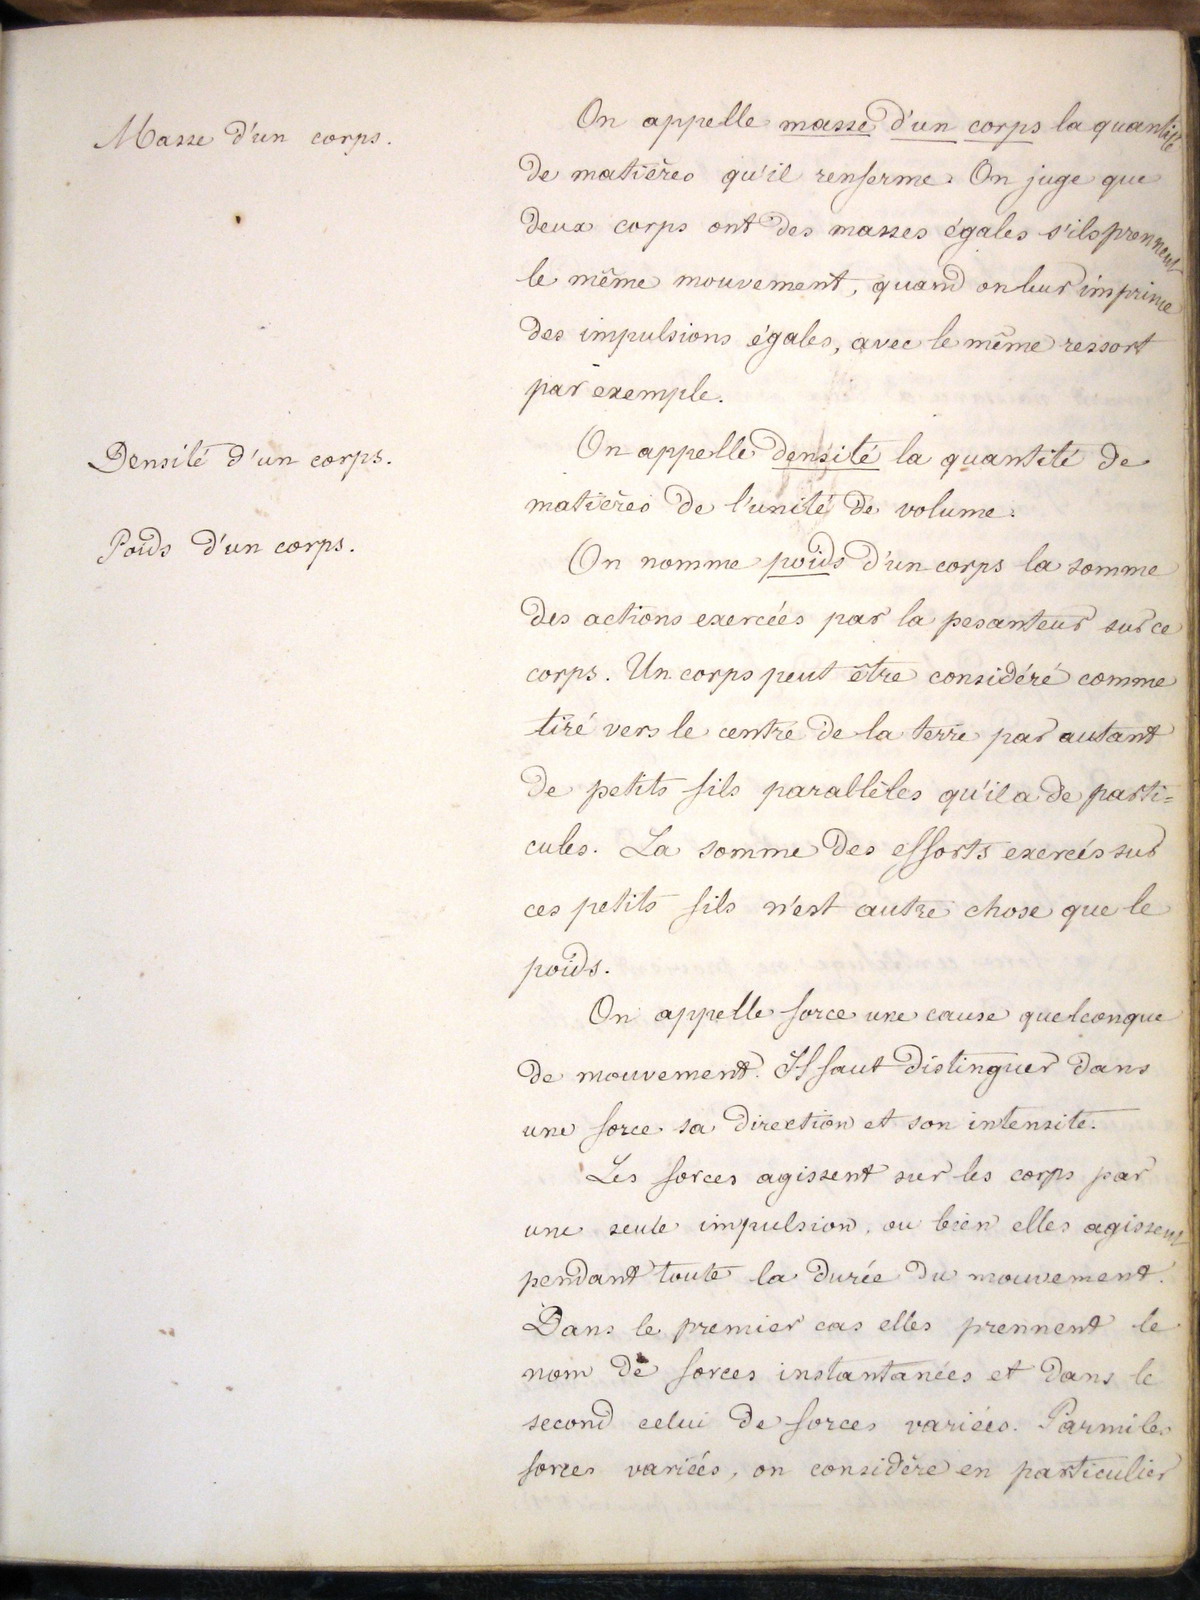 Masse d'un corps.
On appelle masse d'un corps la quantité
de matières qu'il renferme. On juge que
deux corps ont des masses égales s'ils prennent
le même mouvement, quand on leur imprime
des impulsions égales, avec le même ressort
par exemple.
Densité d'un corps.
On appelle densité la quantité de
matières de l'unité de volume.
Poids d'un corps.
On nomme poids d'un corps la somme
des actions exercées par la pesanteur sur ce
corps. Un corps peut être considéré comme
tiré vers le centre de la terre par autant
de petits fils parallèles qu'il a de parti=
cules. La somme des efforts exercés sur
ces petits fils n'est autre chose que le
poids.
On appelle force une cause quelconque
de mouvement. Il faut distinguer dans
une force sa direction et son intensité.
Les forces agissent sur les corps par
une seule impulsion, ou bien elles agissent
pendant toute la durée du mouvement.
Dans le premier cas elles prennent le
nom de forces instantanées et dans le
second celui de forces variées. Parmi les
forces variées, on considère en particulier